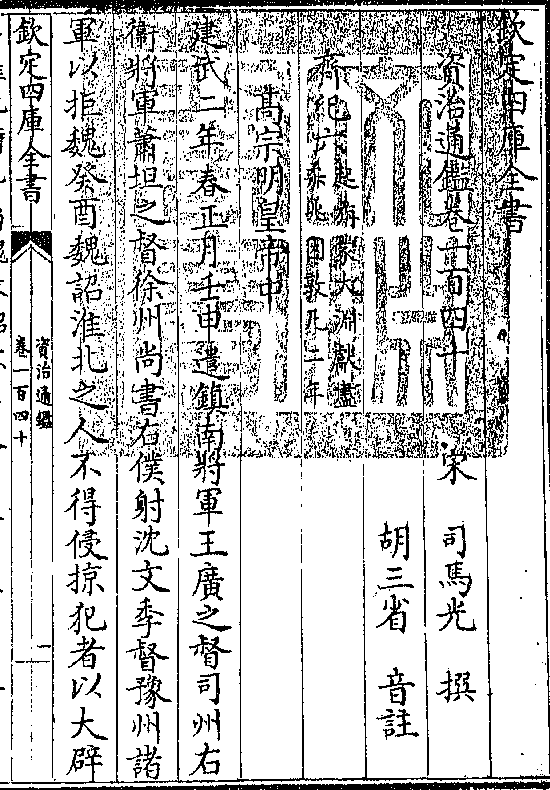 欽定四庫全書
資治通鑑卷一百四十
宋 司馬光 撰
胡三省 音註
齊紀六起旃蒙大淵獻盡柔兆困敦凡二年
高宗明皇帝中
建武二年春正月壬申遣鎮南將軍王廣之督司州右
衛將軍蕭坦之督徐州尚書右僕射沈文季督豫州諸
軍以拒魏癸酉魏詔淮北之人不得侵掠犯者以大辟
欽定四庫全書
資治通鑑
卷一百四十
一